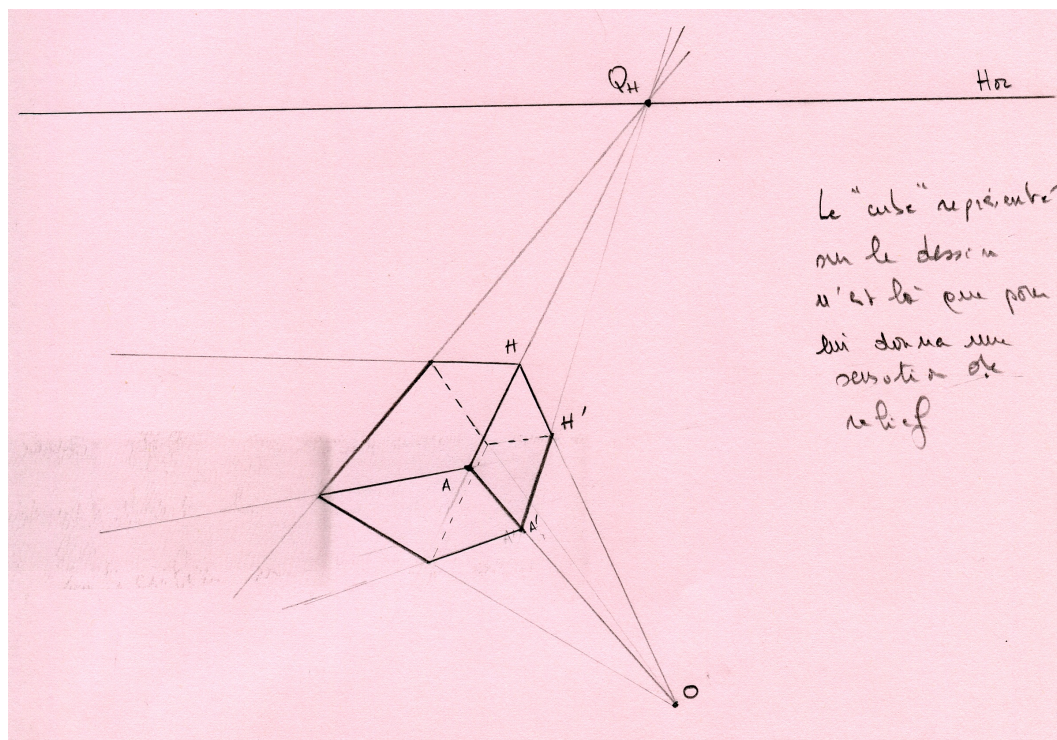 QH
Hor
Le "cube" représenté
sur le dessin
n'est là que pour
lui donner une
sensation de
relief
H
H'
A
A'
O